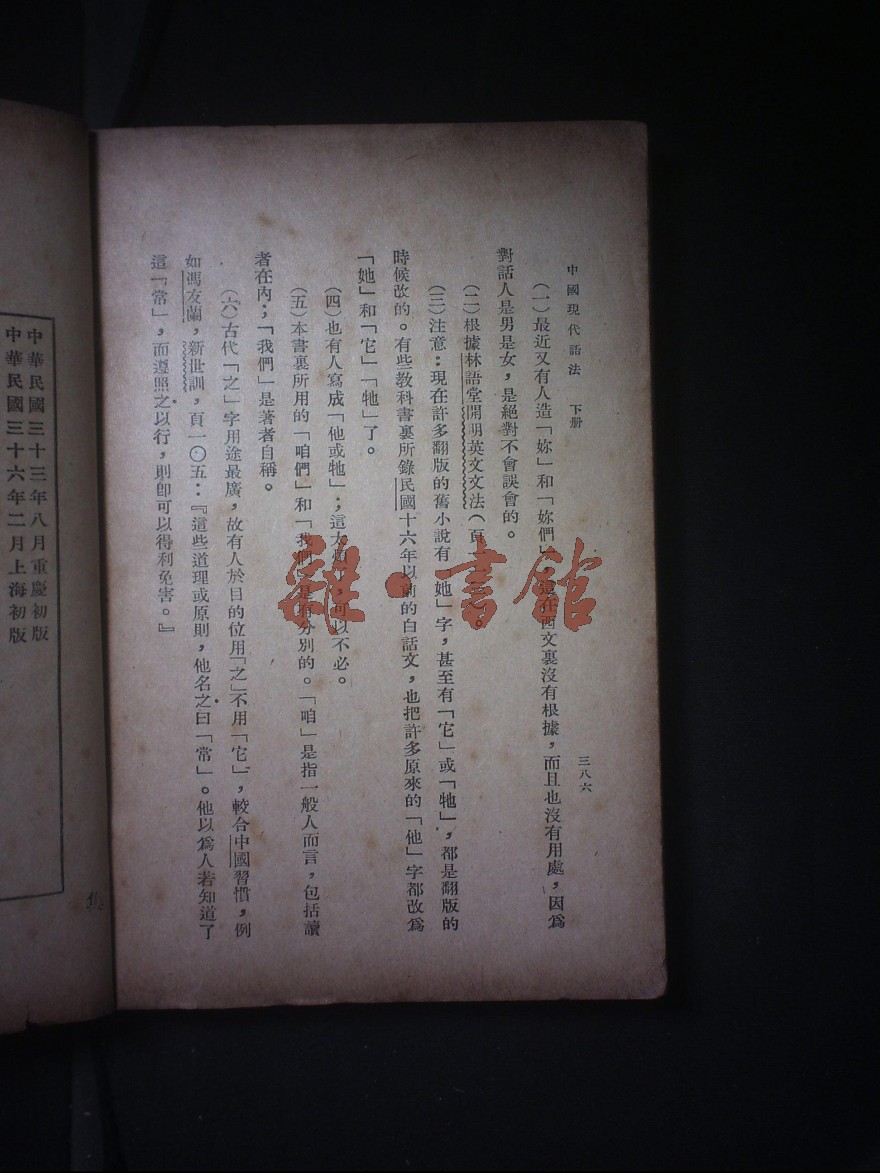 中國現代語法　下册
三八六
（一）最近又有人造「妳」和「妳們」，這在西文裏沒有根據，而且也沒有用處，因爲
對話人是男是女，是絕對不會誤會的。
（二）根據林語堂開明英文文法（頁
（三）注意：現在許多翻版的舊小說有「她」字，甚至有「它」或「牠」，都是翻版的
時候改的。有些教科書裏所錄民國十六年以前的白話文，也把許多原來的「他」字都改爲
「她」和「它」「牠」了。
（四）也有人寫成「他或牠」；這太煩，可以不必。
（五）本書裏所用的「咱們」和「我們」是有分別的。「咱」是指一般人而言，包括讀
者在內；「我們」是著者自稱。
（六）古代「之」字用途最廣，故有人於目的位用「之」不用「它」，較合中國習慣，例
如馮友蘭，新世訓，頁一〇五：『這些道理或原則，他名之曰「常」。他以爲人若知道了
這「常」，而遵照之以行，則卽可以得利免害。』
中華民國三十三年八月重慶初版
中華民國三十六年二月上海初版
雜·書館